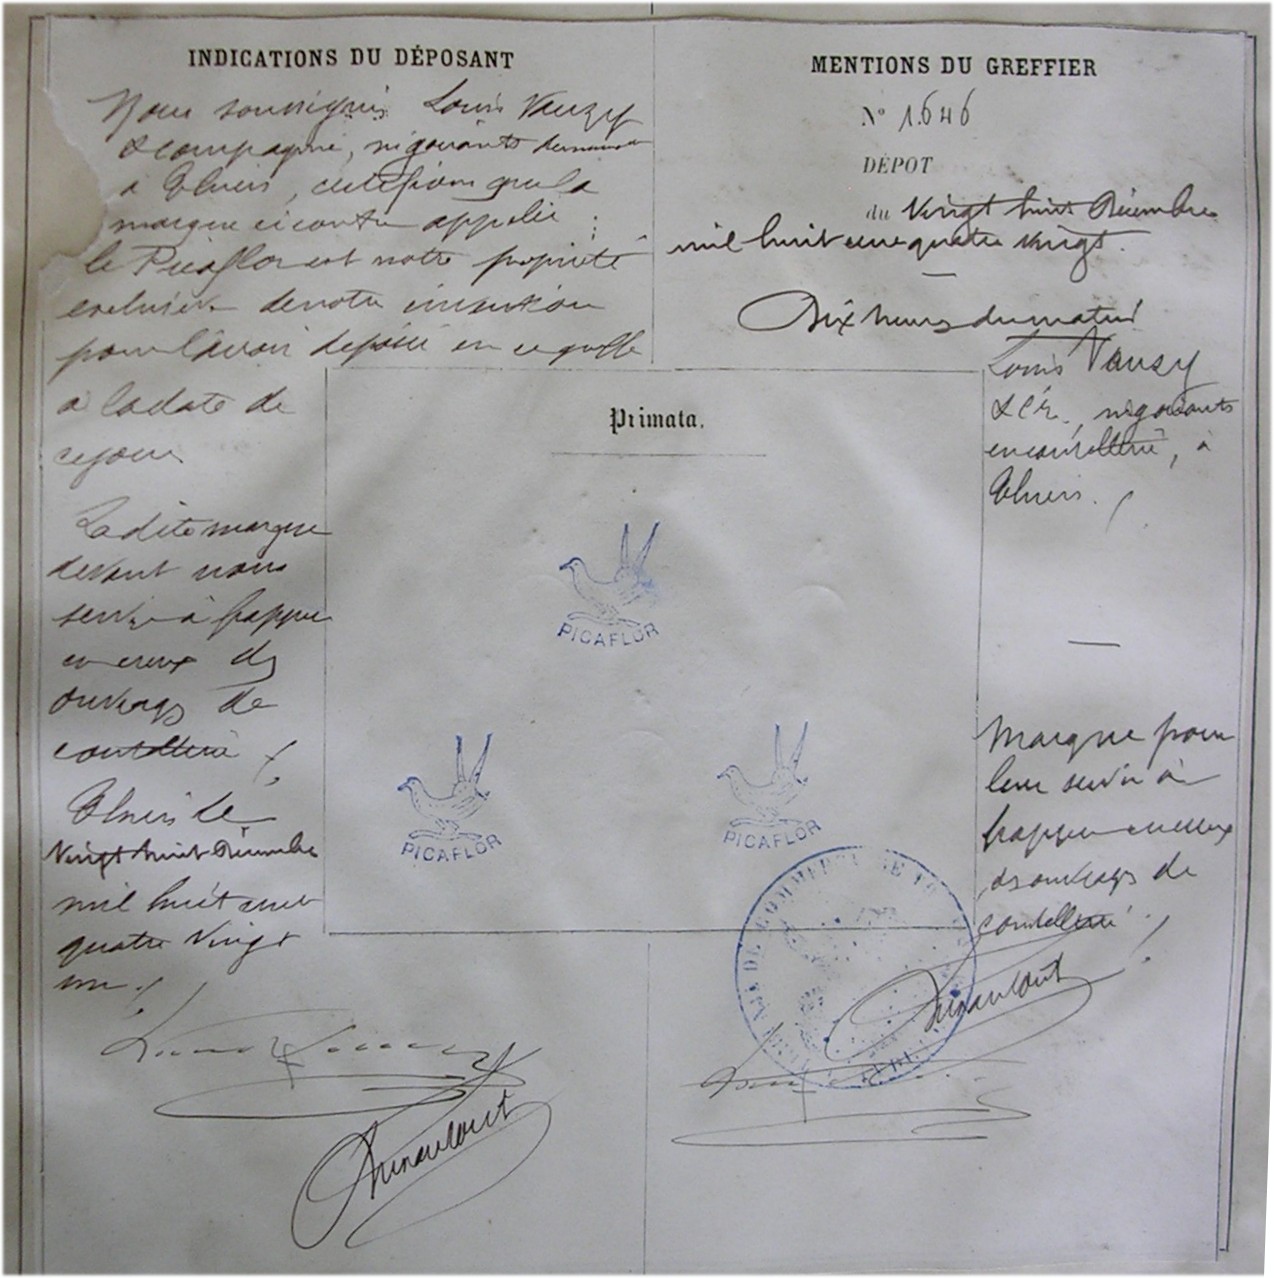 INDICATIONS DU DÉPOSANT
Nous soussignés Louis Vauzy
& compagnie, négociants
à Thiers, certifions que la
marque ci contre appelée :
le Picaflor est notre propriété
exclusive de notre invention
pour l'avoir déposée en ce greffe
à la date de
ce jour.
La dite marque
devant nous
servir à frapper
en creux des
ouvrages de
coutellerie
Thiers le
Vingt huit Décembre
mil huit cent
quatre vingt
un
MENTIONS DU GREFFIER
N° 1.646
DÉPOT
du Vingt huit Décembre
mil huit cent quatre vingt
Dix heures du matin
Louis Vauzy
& Cie, négociants
en coutellerie, à
Thiers.
Marque pour
leur servir à
frapper en creux
des ouvrages de
coutellerie
Primata.
PICAFLOR
PICAFLOR
PICAFLOR
DE COMMERCE DE